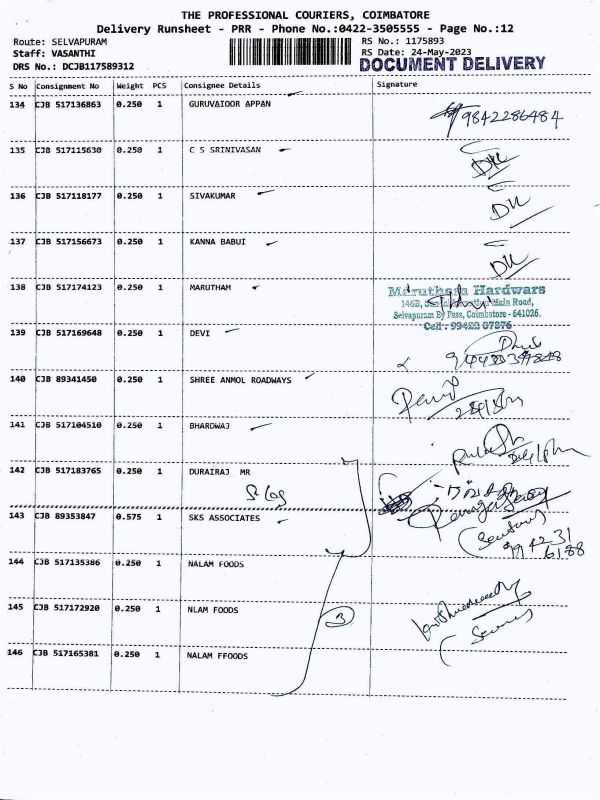 THE PROFESSIONAL COURIERS, COIMBATORE
Delivery Runsheet - PRR - Phone No.:0422-3505555 - Page No.:12
Route: SELVAPURAM
RS No.: 1175893
Staff: VASANTHI
RS Date: 24-May-2023
DRS No.: DCJB117589312
DOCUMENT DELIVERY
S No Consignment No Weight PCS Consignee Details Signature
134 CJB 517136863 0.250 1 GURUVAIOOR APPAN 9842286484
135 CJB 517115630 0.250 1 C S SRINIVASAN
136 CJB 517118177 0.250 1 SIVAKUMAR
137 CJB 517156673 0.250 1 KANNA BABUI
138 CJB 517174123 0.250 1 MARUTHAM
Marutham Hardwars
146B, Main Road,
Selvapuram By Pass, Coimbatore - 641026.
Cell : 99422 07076
139 CJB 517169648 0.250 1 DEVI
140 CJB 89341450 0.250 1 SHREE ANMOL ROADWAYS
141 CJB 517104510 0.250 1 BHARDWAJ
142 CJB 517183765 0.250 1 DURAIRAJ MR
143 CJB 89353847 0.575 1 SKS ASSOCIATES
994231
6188
144 CJB 517135386 0.250 1 NALAM FOODS
145 CJB 517172920 0.250 1 NLAM FOODS
3
146 CJB 517165381 0.250 1 NALAM FFOODS